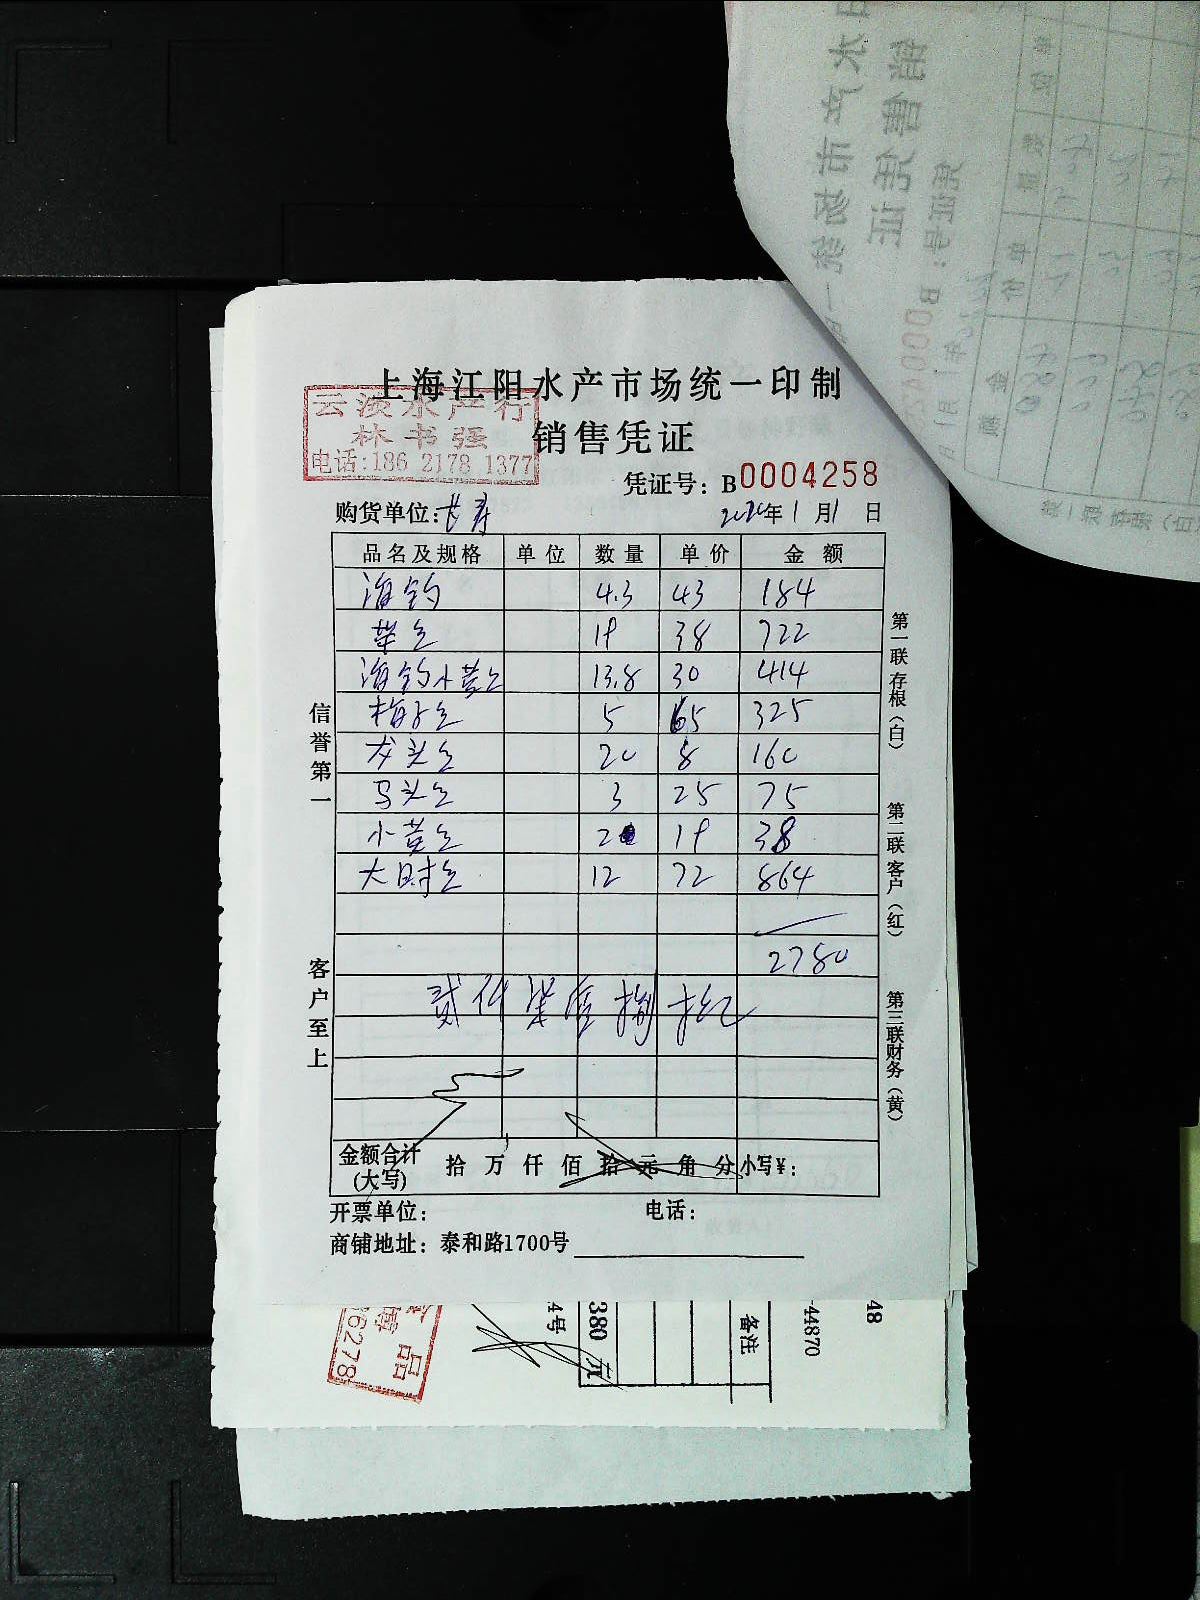 上海江阳水产市场统一印制
云淡水产行
林书强
电话:186 2178 1377
销售凭证
凭证号: B0004258
购货单位:长寿 2020年1月1日
品名及规格 单位 数量 单价 金额
海钓 4.3 43 184
带仝 19 38 722
海钓小黄仝 13.8 30 414
梅子仝 5 65 325
龙头仝 20 8 160
马头仝 3 25 75
小黄仝 2 19 38
大时仝 12 72 864
2780
贰仟柒佰捌拾元
金额合计(大写) 拾 万 仟 佰 拾 元 角 分 小写¥:
开票单位: 电话:
商铺地址: 泰和路1700号
信誉第一
客户至上
第一联存根(白)
第二联客户(红)
第三联财务(黄)
6278
4号
380 元
备注
-44870
48